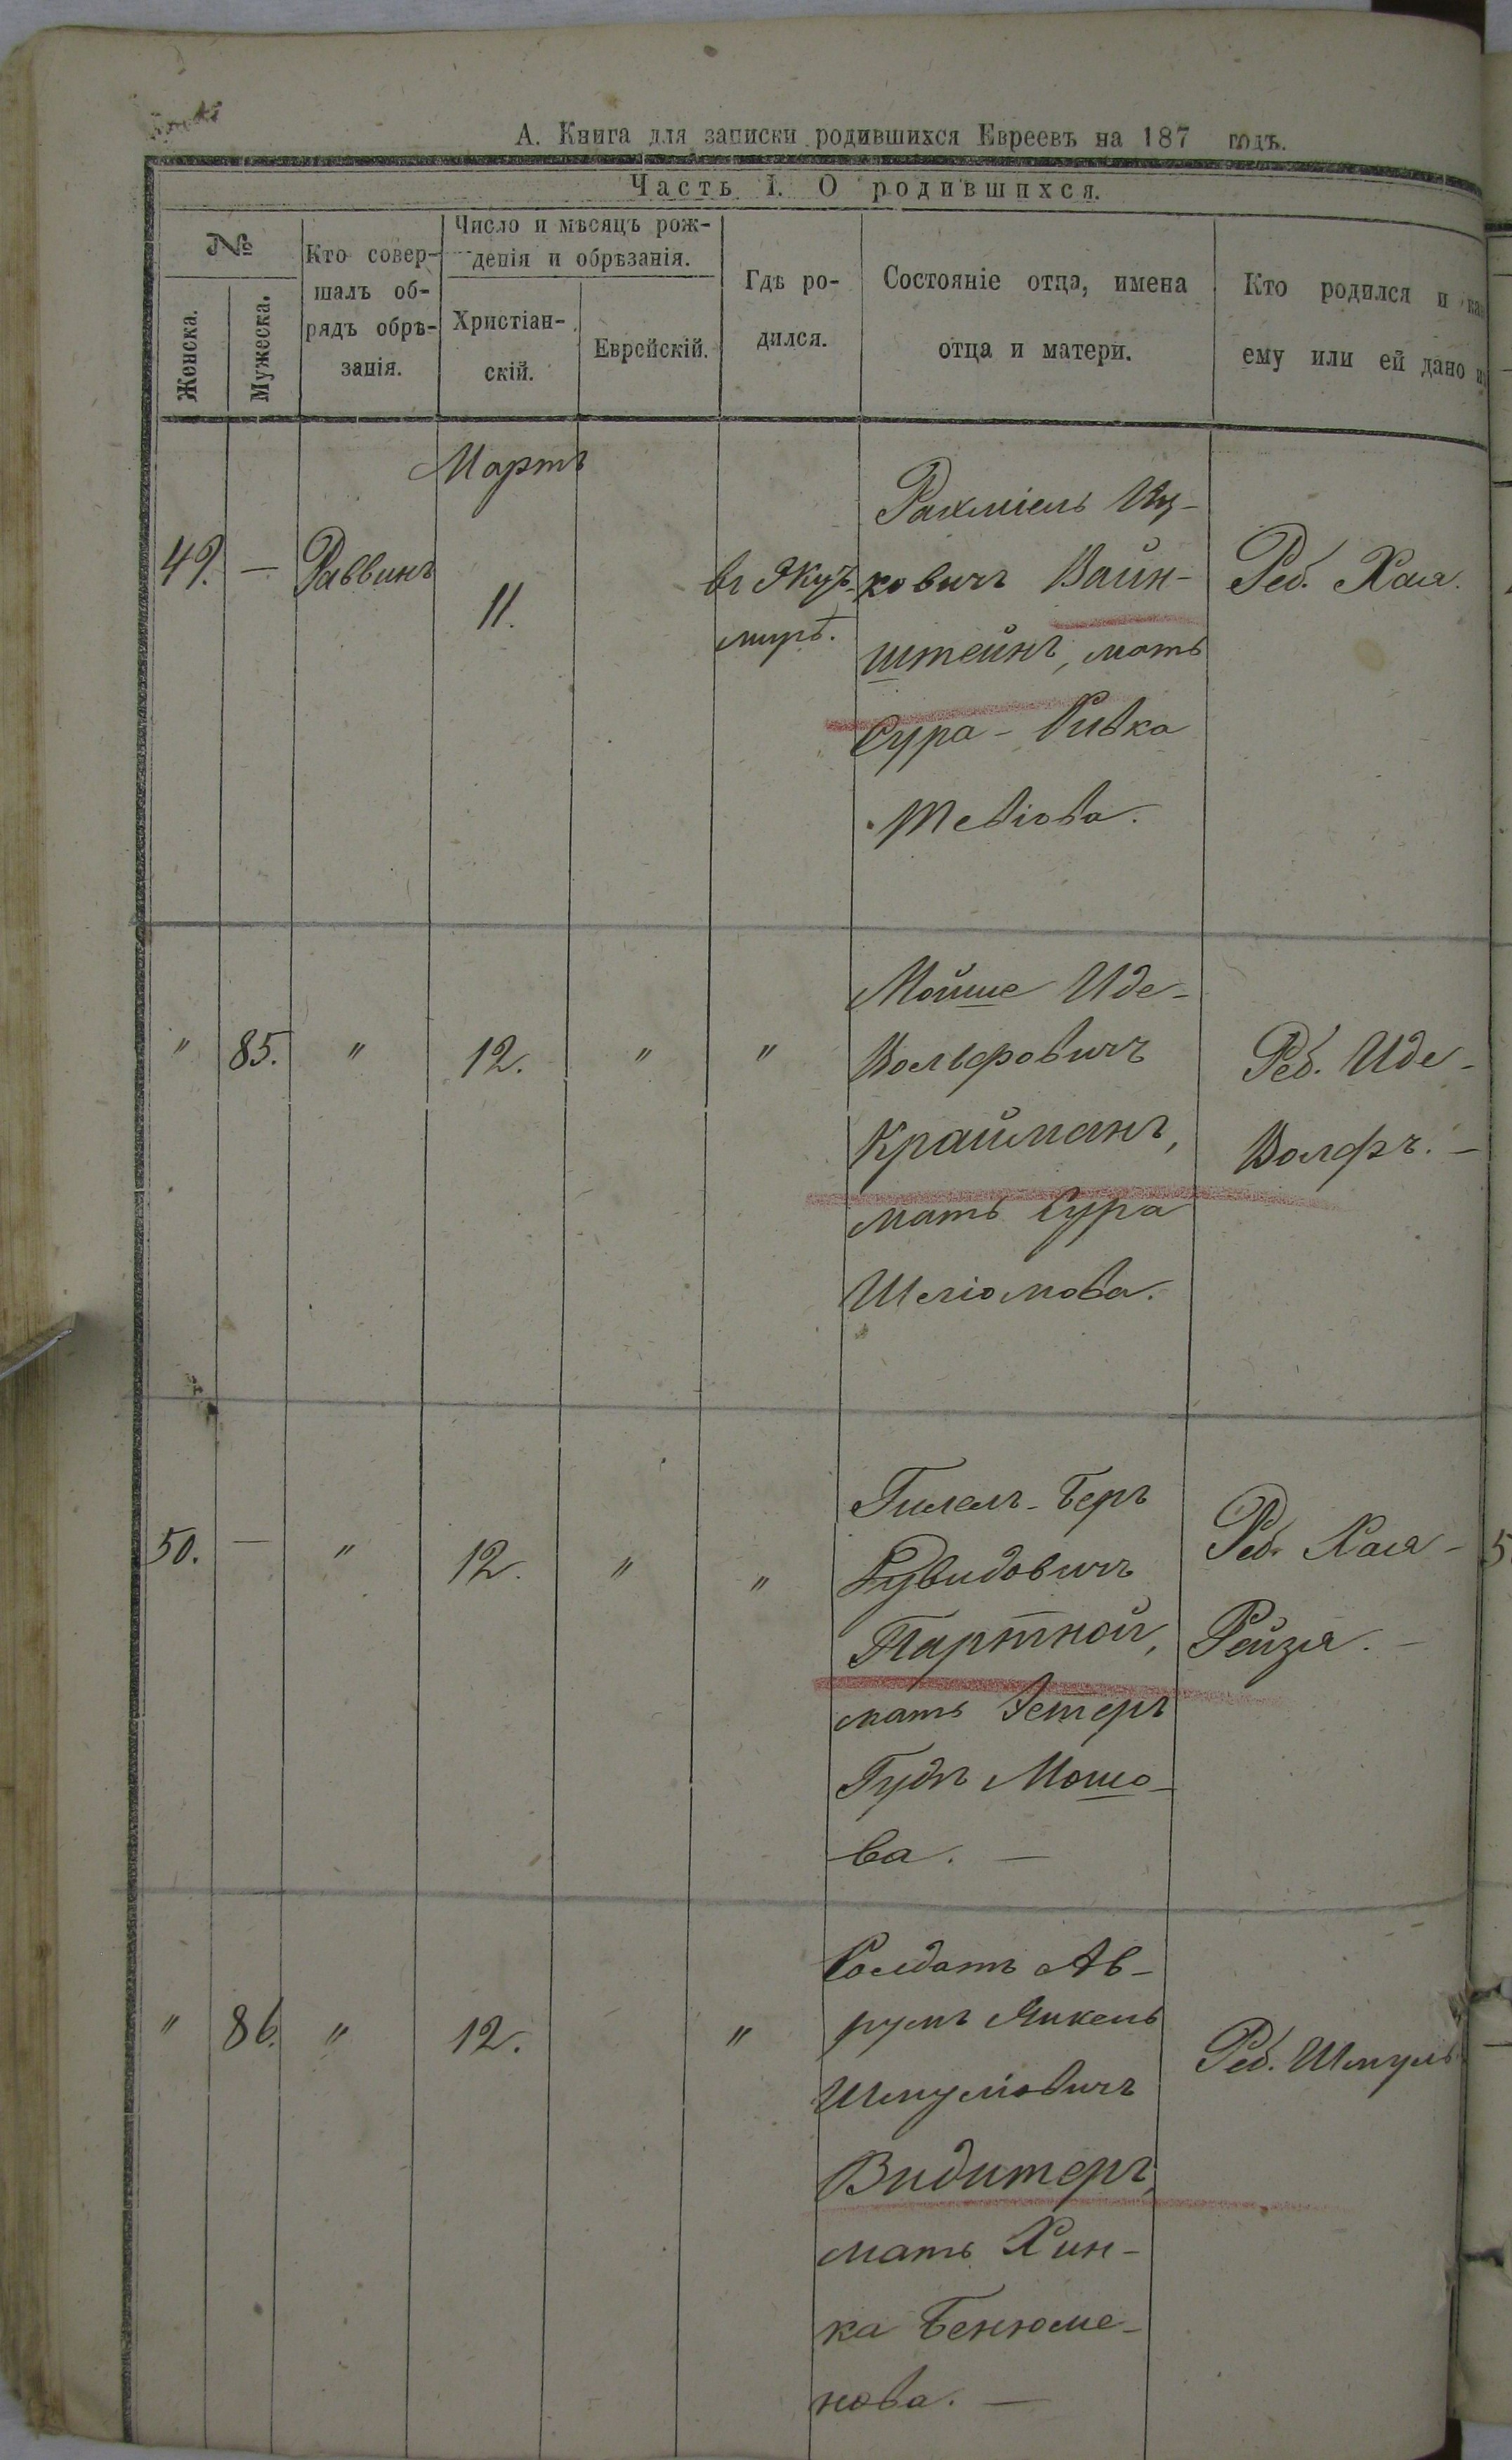 А. Книга для записки родившихся Евреевъ на 187 годъ.
Часть I. О родившихся.
№
Женска.
Мужеска.
Кто совер-
шалъ об-
рядъ обрѣ-
занія.
Число и мѣсяцъ рож-
денія и обрѣзанія.
Христіан-
скій.
Еврейскій.
Гдѣ ро-
дился.
Состояніе отца, имена
отца и матери.
Кто родился и
ему или ей дано
Мартъ
49. — Раввинъ
11.
Рахміель Иц-
ковичъ Вайн-
штейнъ, мать
Сура-Ривка
Тевіова.
Реб. Хая.
" 85. " 12. " "
Мойше Иде-
Вольфовичъ
Крайманъ,
мать Сура
Шліомова.
Реб. Иде-
Волфъ. —
50. — " 12. " "
Гилелъ-Беръ
Партной,
мать Эстеръ
Мошо-
ва. —
Реб. Хая-
Рейзя. —
" 86. " 12. "
Солдатъ Ав-
румъ Янкель
Шмуліовичъ
Видитеръ,
мать Хин-
ка Бенюме-
нова. —
Реб. Шмуль